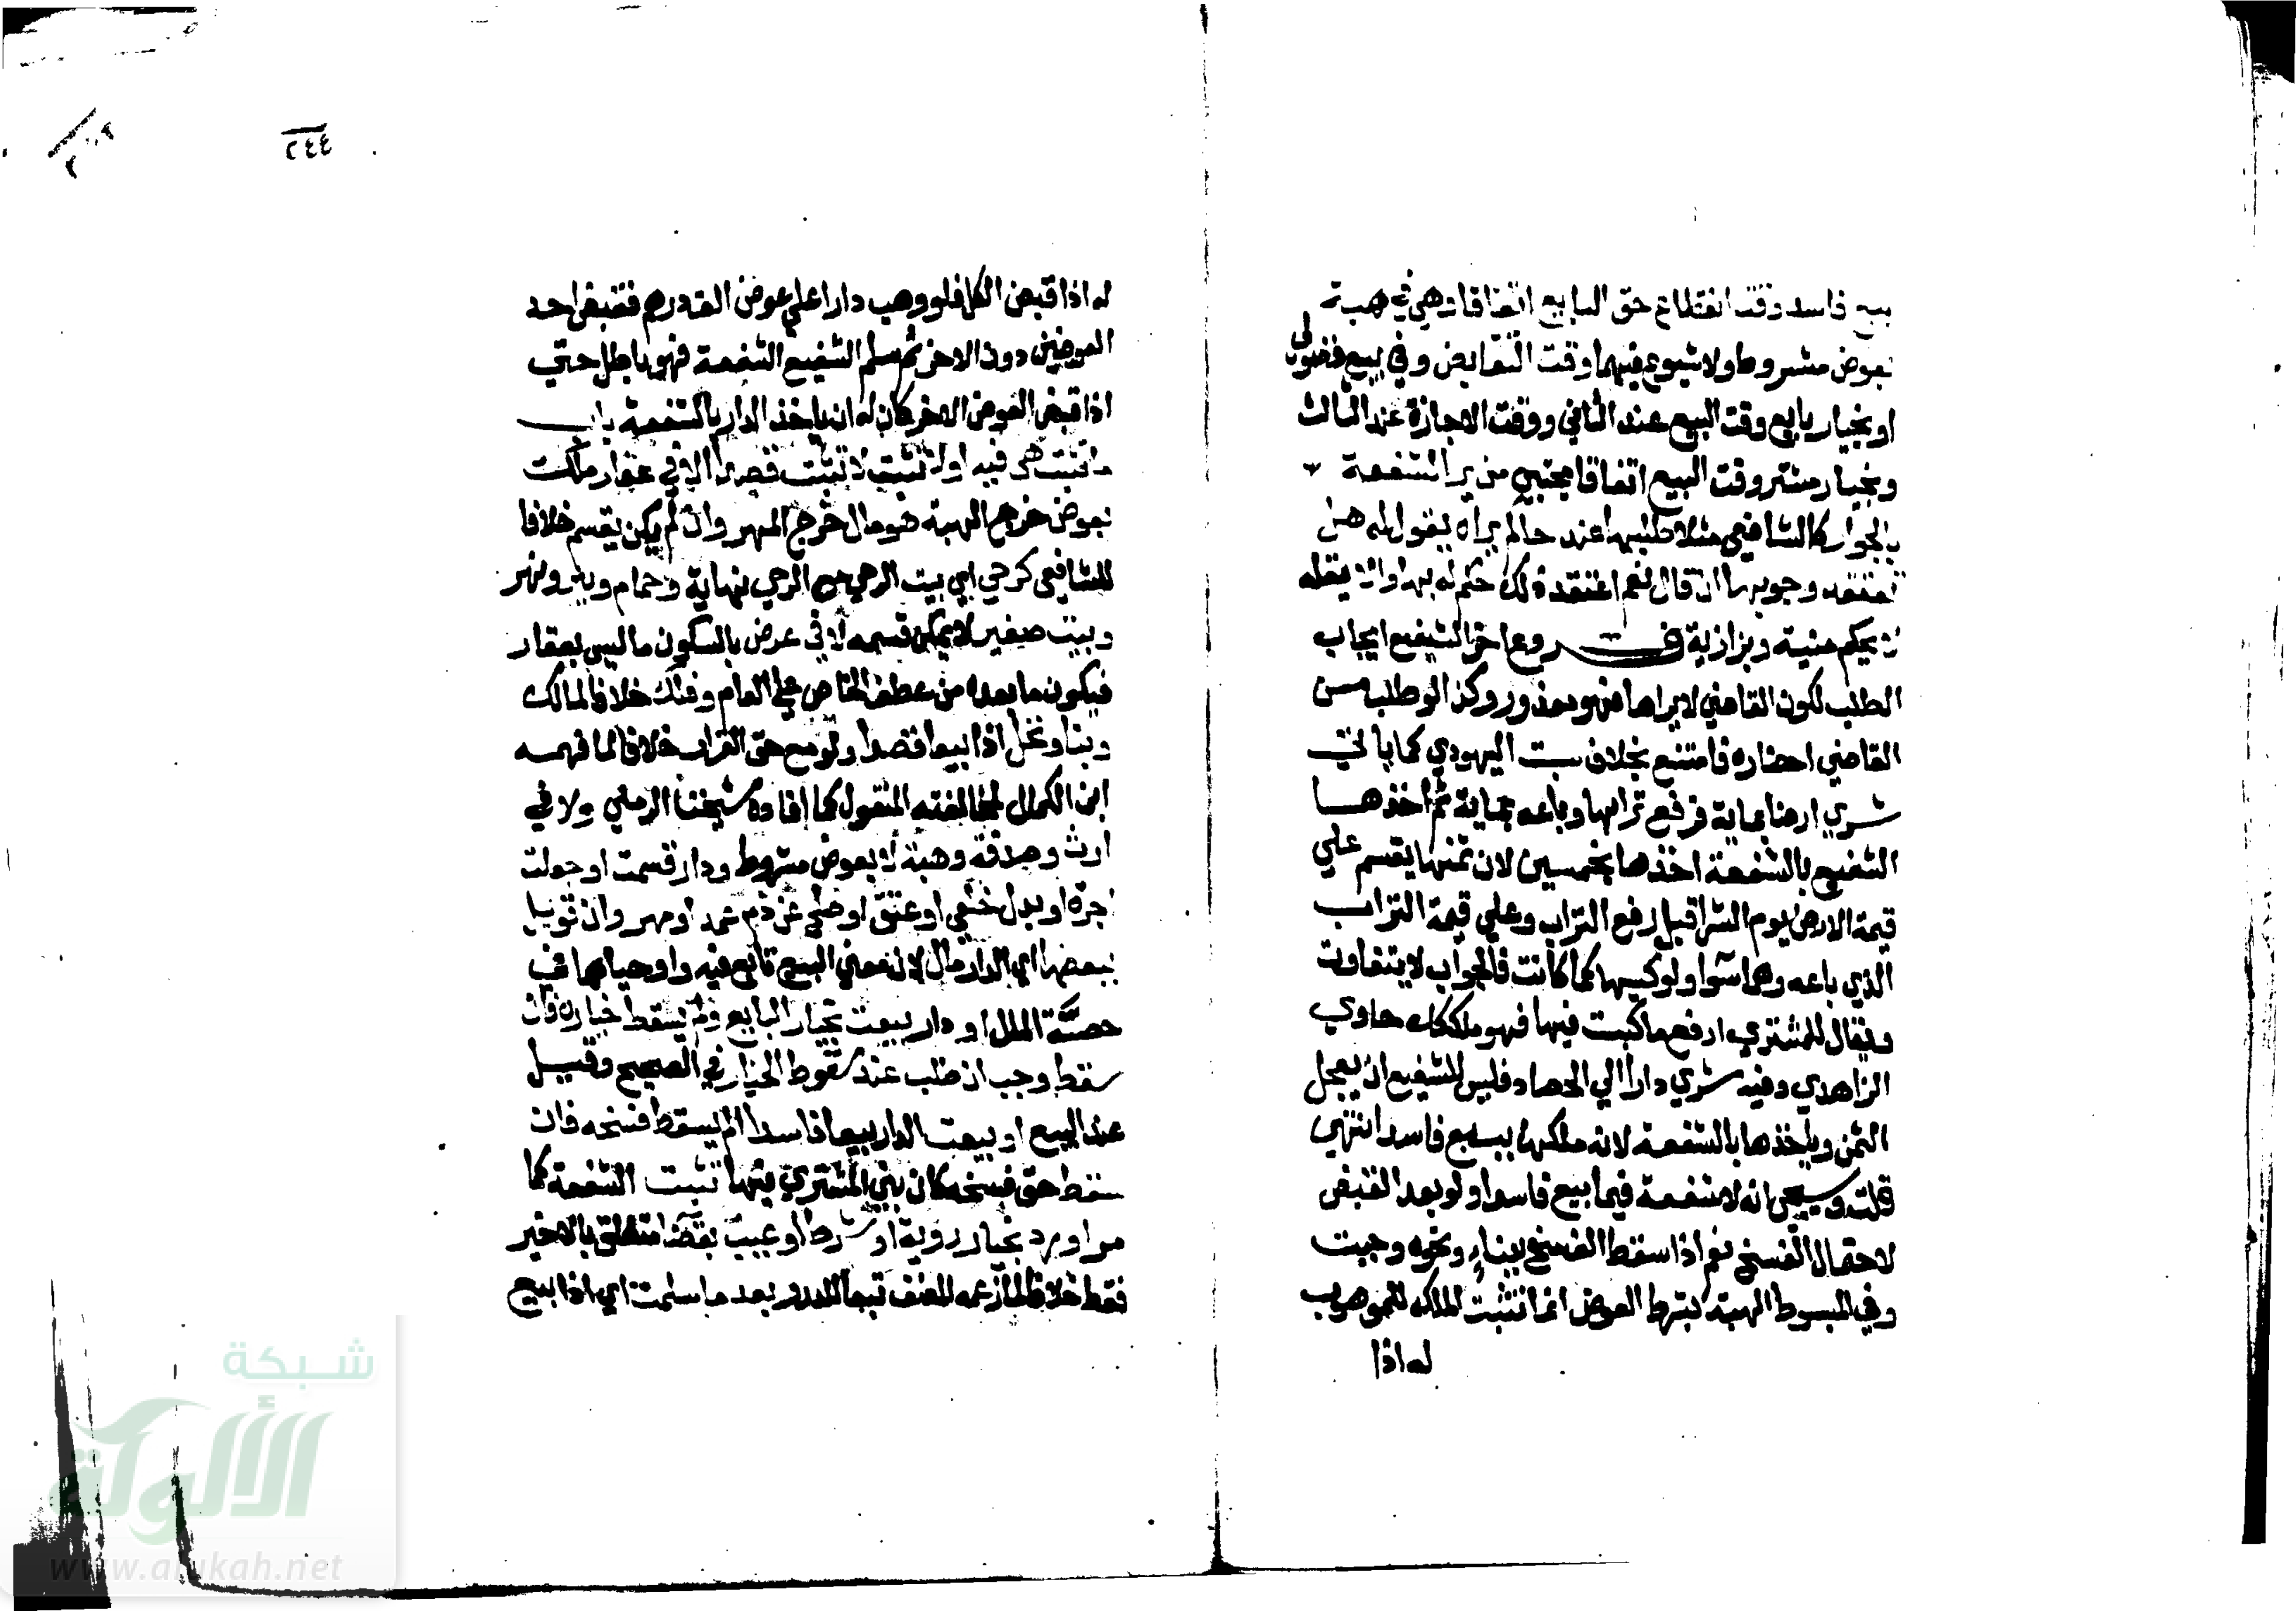 بيع فاسد وقت انقطاع حق البايع اتفاقا وهي في هبة
بعوض مشروط ولا شيوع فيهما وقت التقابض وفي بيع فضولي
او بخيار بايع وقت البيع عند الثاني ووقت الاجازة عند الثالث
وبخيار مشتر وقت البيع اتفاقا مجتبي من ير الشفعة
بالجوار كالشافعي مثلا طلبها عند حاكم يراه يقول له هل
تعتقد وجوبها ان قال نعم اعتقد ذلك حكم له بها والا يقله
لا يحكم منية وبزازية فروع اخر الشفيع ايجاب
الطلب لكون القاضي لا يراها فهو معذور وكذا لو طلب من
القاضي احضاره فامتنع بخلاف سبت اليهودي كما ياتي
شري ارضا بماية فرفع ترابها وباعه بماية ثم اخذها
الشفيع بالشفعة اخذها بخمسين لان ثمنها يقسم علي
قيمة الارض يوم الشرا قبل رفع التراب وعلي قيمة التراب
الذي باعه وهما سوا ولو كبسها كما كانت فالجواب لا يتفاوت
ويقال للمشتري ارفع ما كبست فيها فهو ملكك حاوي
الزاهدي وفيه شري دارا الي الحصاد فليس للشفيع ان يعجل
الثمن وياخذها بالشفعة لانه ملكها ببيع فاسد انتهي
قلت وسيجي انه لا شفعة فيما بيع فاسدا ولو بعد القبض
لاحتمال الفسخ نعم اذا سقط الفسخ ببناء ونحوه وجبت
وفي المبسوط الهبة بشرط العوض انما تثبت الملك للموهوب
له اذا
٢٤٤
له اذا قبض الكل فلو وهب دارا علي عوض الف درهم فقبض احد
العوضين دون الاخر ثم سلم الشفيع الشفعة فهو باطل حتي
اذا قبض العوض الاخر كان له ان ياخذ الدار بالشفعة باب
ما تثبت هي فيه او لا تثبت لا تثبت قصدا الا في عقار ملك
بعوض خرج الهبة هو مال خرج المهر وان لم يكن يقسم خلافا
للشافعي كرحي اي بيت الرحي مع الرحي نهاية وحمام وبير ونهر
وبيت صغير لا يمكن قسمه لا في عرض بالسكون ما ليس بعقار
فيكون ما بعده من عطف الخاص علي العام وفلك خلافا لمالك
وبنا ونخل اذا بيعا قصدا ولو مع حق القرار خلافا لما فهمه
ابن الكمال لمخالفته المنقول كما افاده شيخنا الرملي ولا في
ارث وصدقة وهبة لا بعوض مشروط ودار قسمت او جعلت
اجرة او بدل خلع او عتق او صلح عن دم عمد او مهر وان قوبل
ببعضها اي الدار مال لان معني البيع تابع فيه واوجباها في
حصة المال او دار بيعت بخيار البايع ولم يسقط خياره فان
سقط وجب ان طلب عند سقوط الخيار في الصحيح وقيل
عند البيع او بيعت الدار بيعا فاسدا لم يسقط فسخه فان
سقط حق فسخه كان بني المشتري فيها تثبت الشفعة كما
مر او رد بخيار روية او شرط او عيب بقضا متعلق بالاخير
فقط خلافا لما زعمه المصنف تبعا للدرر بعد ما سلمت اي اذا بيع
شبكة
الألوكة
www.alukah.net